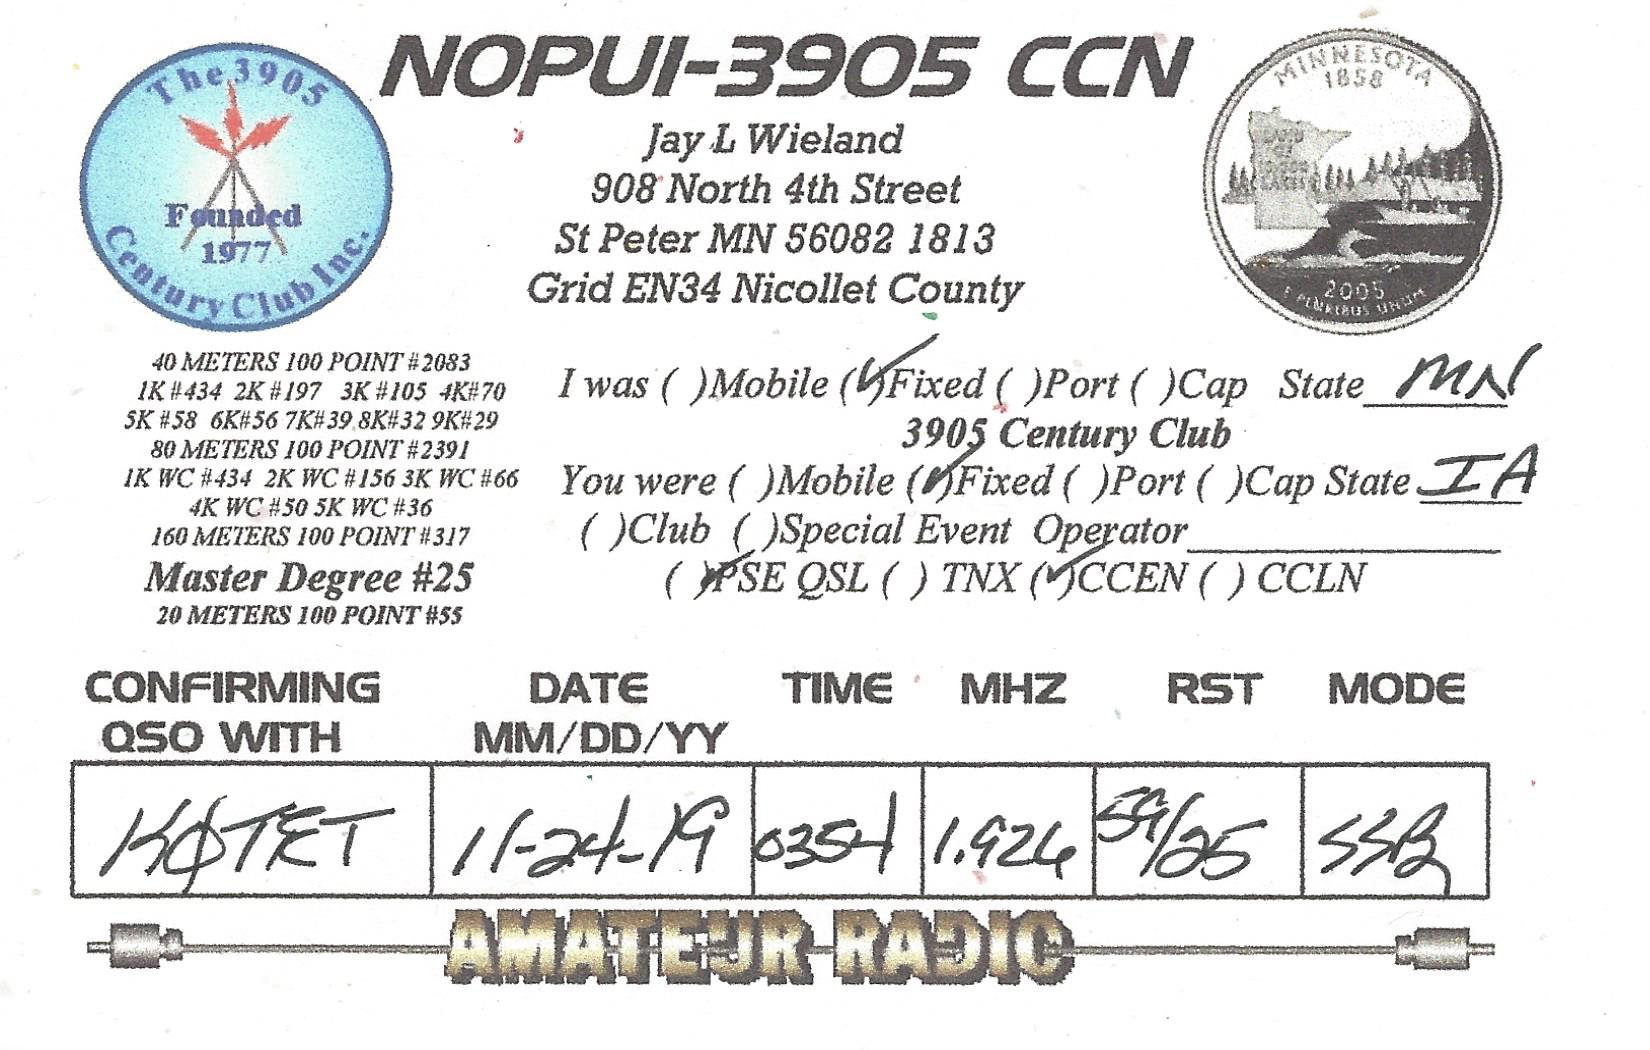 NOPUI-3905 CCN
The 3905
Founded
1977
Century Club Inc.
MINNESOTA
1858
2005
E PLURIBUS UNUM
Jay L Wieland
908 North 4th Street
St Peter MN 56082 1813
Grid EN34 Nicollet County
40 METERS 100 POINT #2083
1K #434 2K #197 3K #105 4K#70
5K #58 6K#56 7K#39 8K#32 9K#29
80 METERS 100 POINT #2391
1K WC #434 2K WC #156 3K WC #66
4K WC #50 5K WC #36
160 METERS 100 POINT #317
Master Degree #25
20 METERS 100 POINT #55
I was ( )Mobile (✓)Fixed ( )Port ( )Cap State MN
3905 Century Club
You were ( )Mobile (✓)Fixed ( )Port ( )Cap State IA
( )Club ( )Special Event Operator
(✓)PSE QSL ( ) TNX (✓)CCEN ( ) CCLN
CONFIRMING QSO WITH DATE MM/DD/YY TIME MHZ RST MODE
KØTET 11-24-19 0354 1.926 59/25 SSB
AMATEUR RADIO